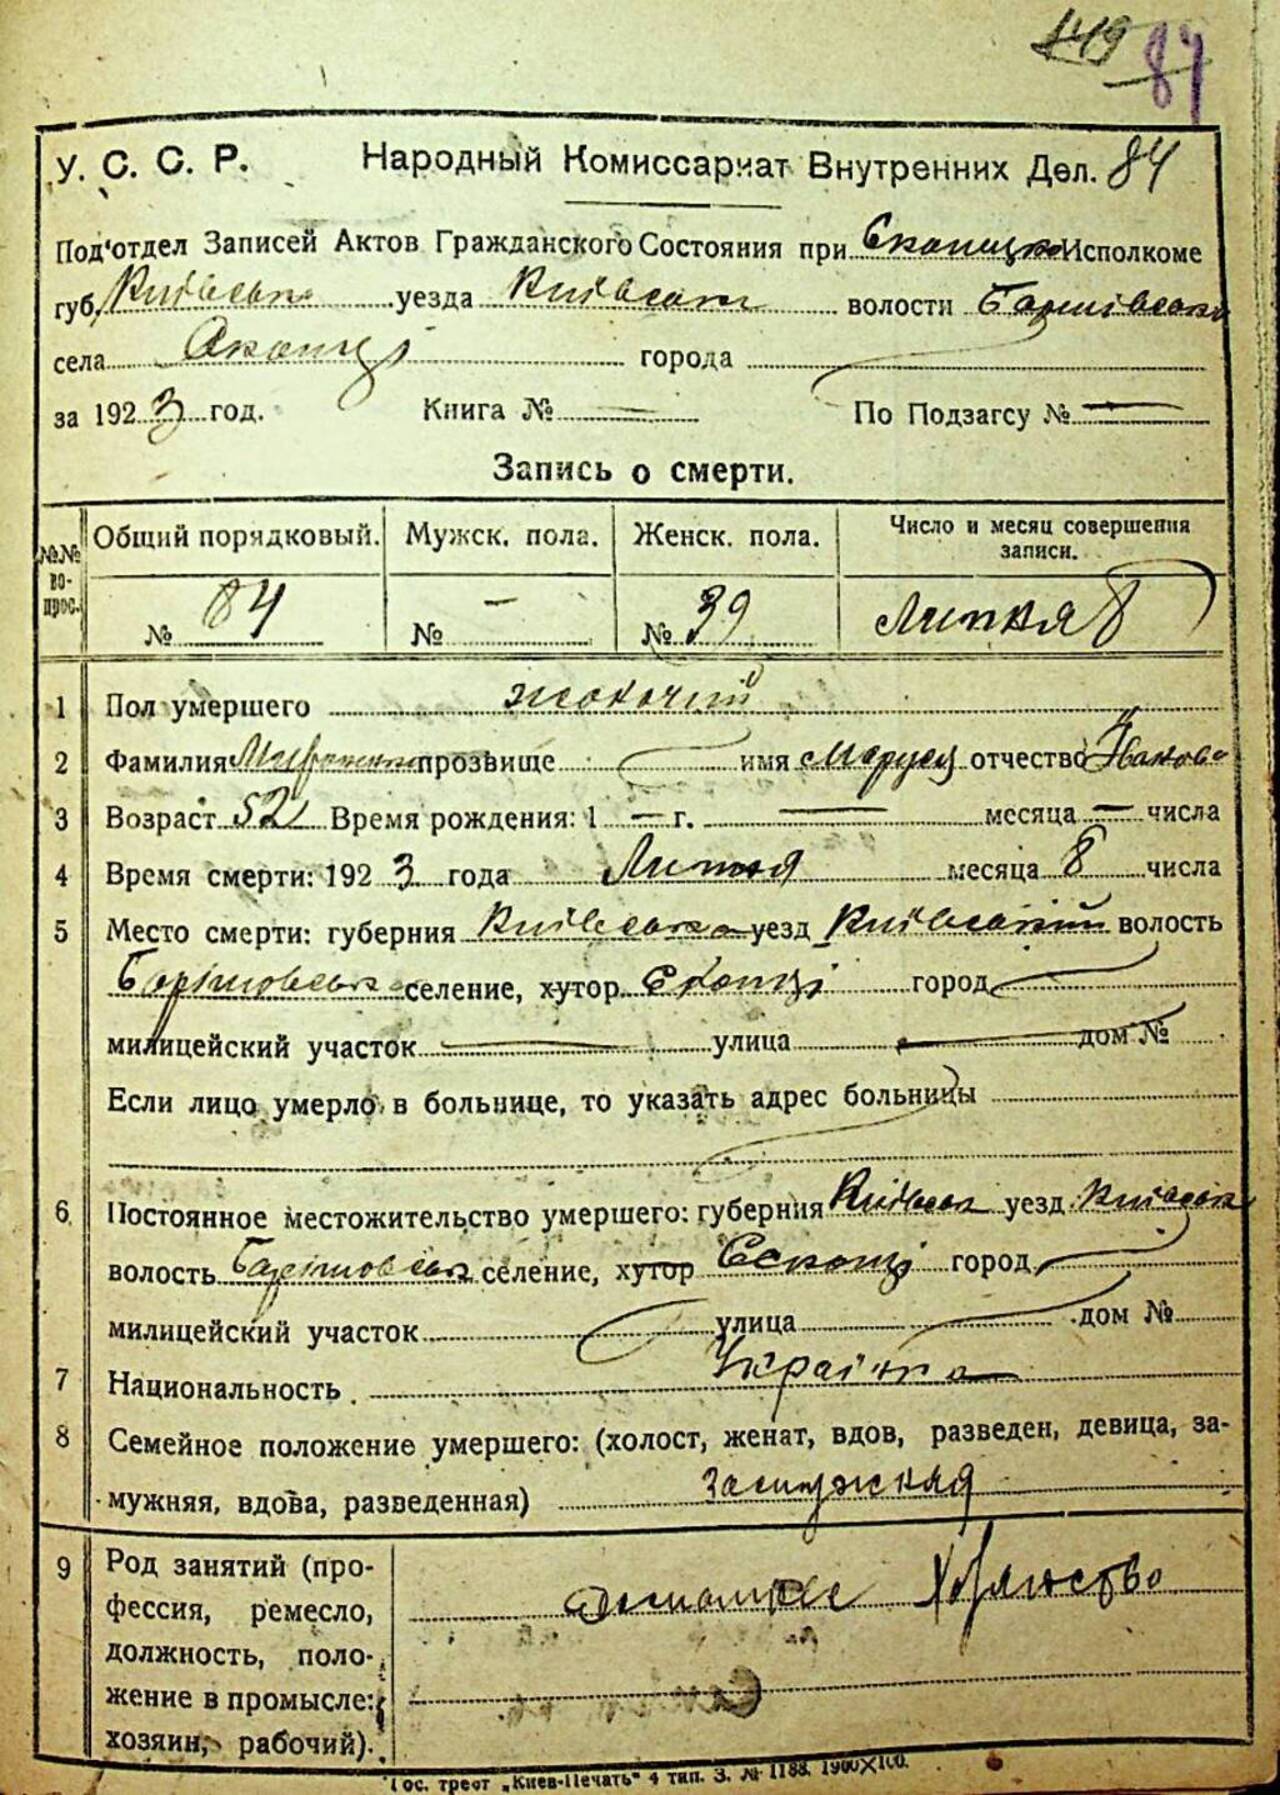 149 84
У. С. С. Р. Народный Комиссариат Внутренних Дел. 84
Под'отдел Записей Актов Гражданского Состояния при Исполкоме
губ. Київсько уезда Київськ волости
села Скопці города
за 1923 год. Книга № — По Подзагсу № —
Запись о смерти.
№№ вопрос. Общий порядковый. Мужск. пола. Женск. пола. Число и месяц совершения записи.
№ 84 № - № 39 Липня 8
1 Пол умершего жоночий
2 Фамилия прозвище имя Маруся отчество Іванова
3 Возраст 52 Время рождения: 1 — г. — месяца — числа
4 Время смерти: 1923 года Липня месяца 8 числа
5 Место смерти: губерния Київська уезд Київський волость
Барішовська селение, хутор Скопці город
милицейский участок — улица — дом №
Если лицо умерло в больнице, то указать адрес больницы
6 Постоянное местожительство умершего: губерния Київськ уезд Київськ
волость Барішовськ селение, хутор Скопці город
милицейский участок улица дом №
7 Национальность Українка
8 Семейное положение умершего: (холост, женат, вдов, разведен, девица, за-
мужняя, вдова, разведенная) замужная
9 Род занятий (про-
фессия, ремесло, Домашнее Хозяйство
должность, поло-
жение в промысле:
хозяин, рабочий).
Гос. трест „Киев-Печать" 4 тип. З. № 1188. 1900×100.